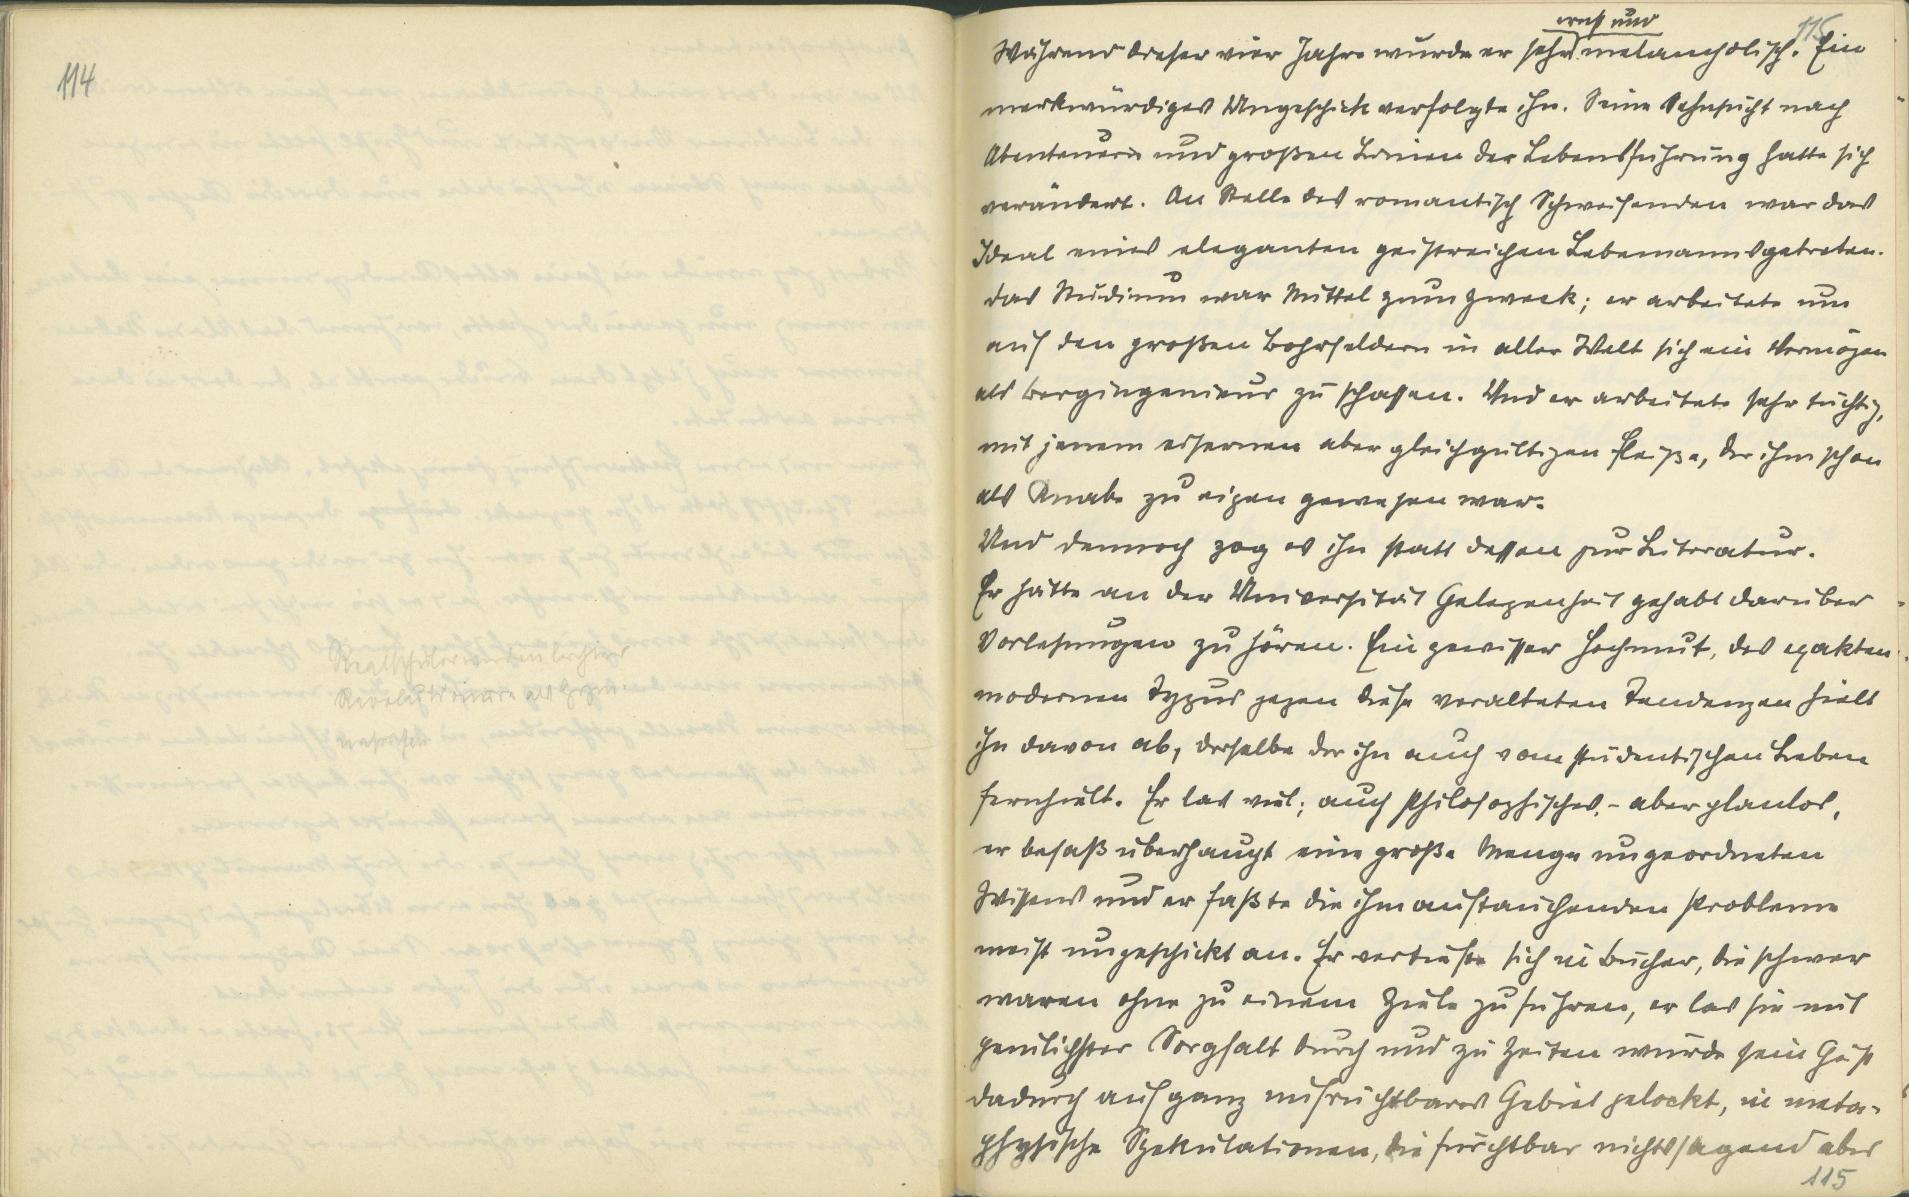 114
Realschüler werden leichter
Revolutionäre als Gym-
nasiasten
115
ernst und
Während dieser vier Jahre wurde er sehr melancholisch. Ein
merkwürdiges Ungeschick verfolgte ihn. Seine Sehnsucht nach
Abenteuern und großen Linien der Lebensführung hatte sich
verändert. An Stelle des romantisch Schweifenden war das
Ideal eines eleganten geistreichen Lebemanns getreten.
Das Studium war Mittel zum Zweck; er arbeitete um
auf den großen Bohrfeldern in aller Welt sich ein Vermögen
als Bergingenieur zu schaffen. Und er arbeitete sehr tüchtig,
mit jenem eisernen aber gleichgültigen Fleiße, der ihm schon
als Knabe zu eigen gewesen war.
Und dennoch zog es ihn statt dessen zur Literatur.
Er hätte an der Universität Gelegenheit gehabt darüber
Vorlesungen zu hören. Ein gewisser Hochmut, des exakten
modernen Typus gegen diese veralteten Tendenzen hielt
ihn davon ab, derselbe der ihn auch vom studentischen Leben
fernhielt. Er las viel; auch Philosophisches, - aber planlos,
er besaß überhaupt eine große Menge ungeordneten
Wissens und er faßte die ihm auftauchenden Probleme
meist ungeschickt an. Er vertiefte sich in Bücher, die schwer
waren ohne zu einem Ziele zu führen, er las sie mit
peinlichster Sorgfalt durch und zu Zeiten wurde sein Geist
dadurch auf ganz unfruchtbares Gebiet gelockt, in meta-
physische Spekulationen, die furchtbar nichtssagend aber
115